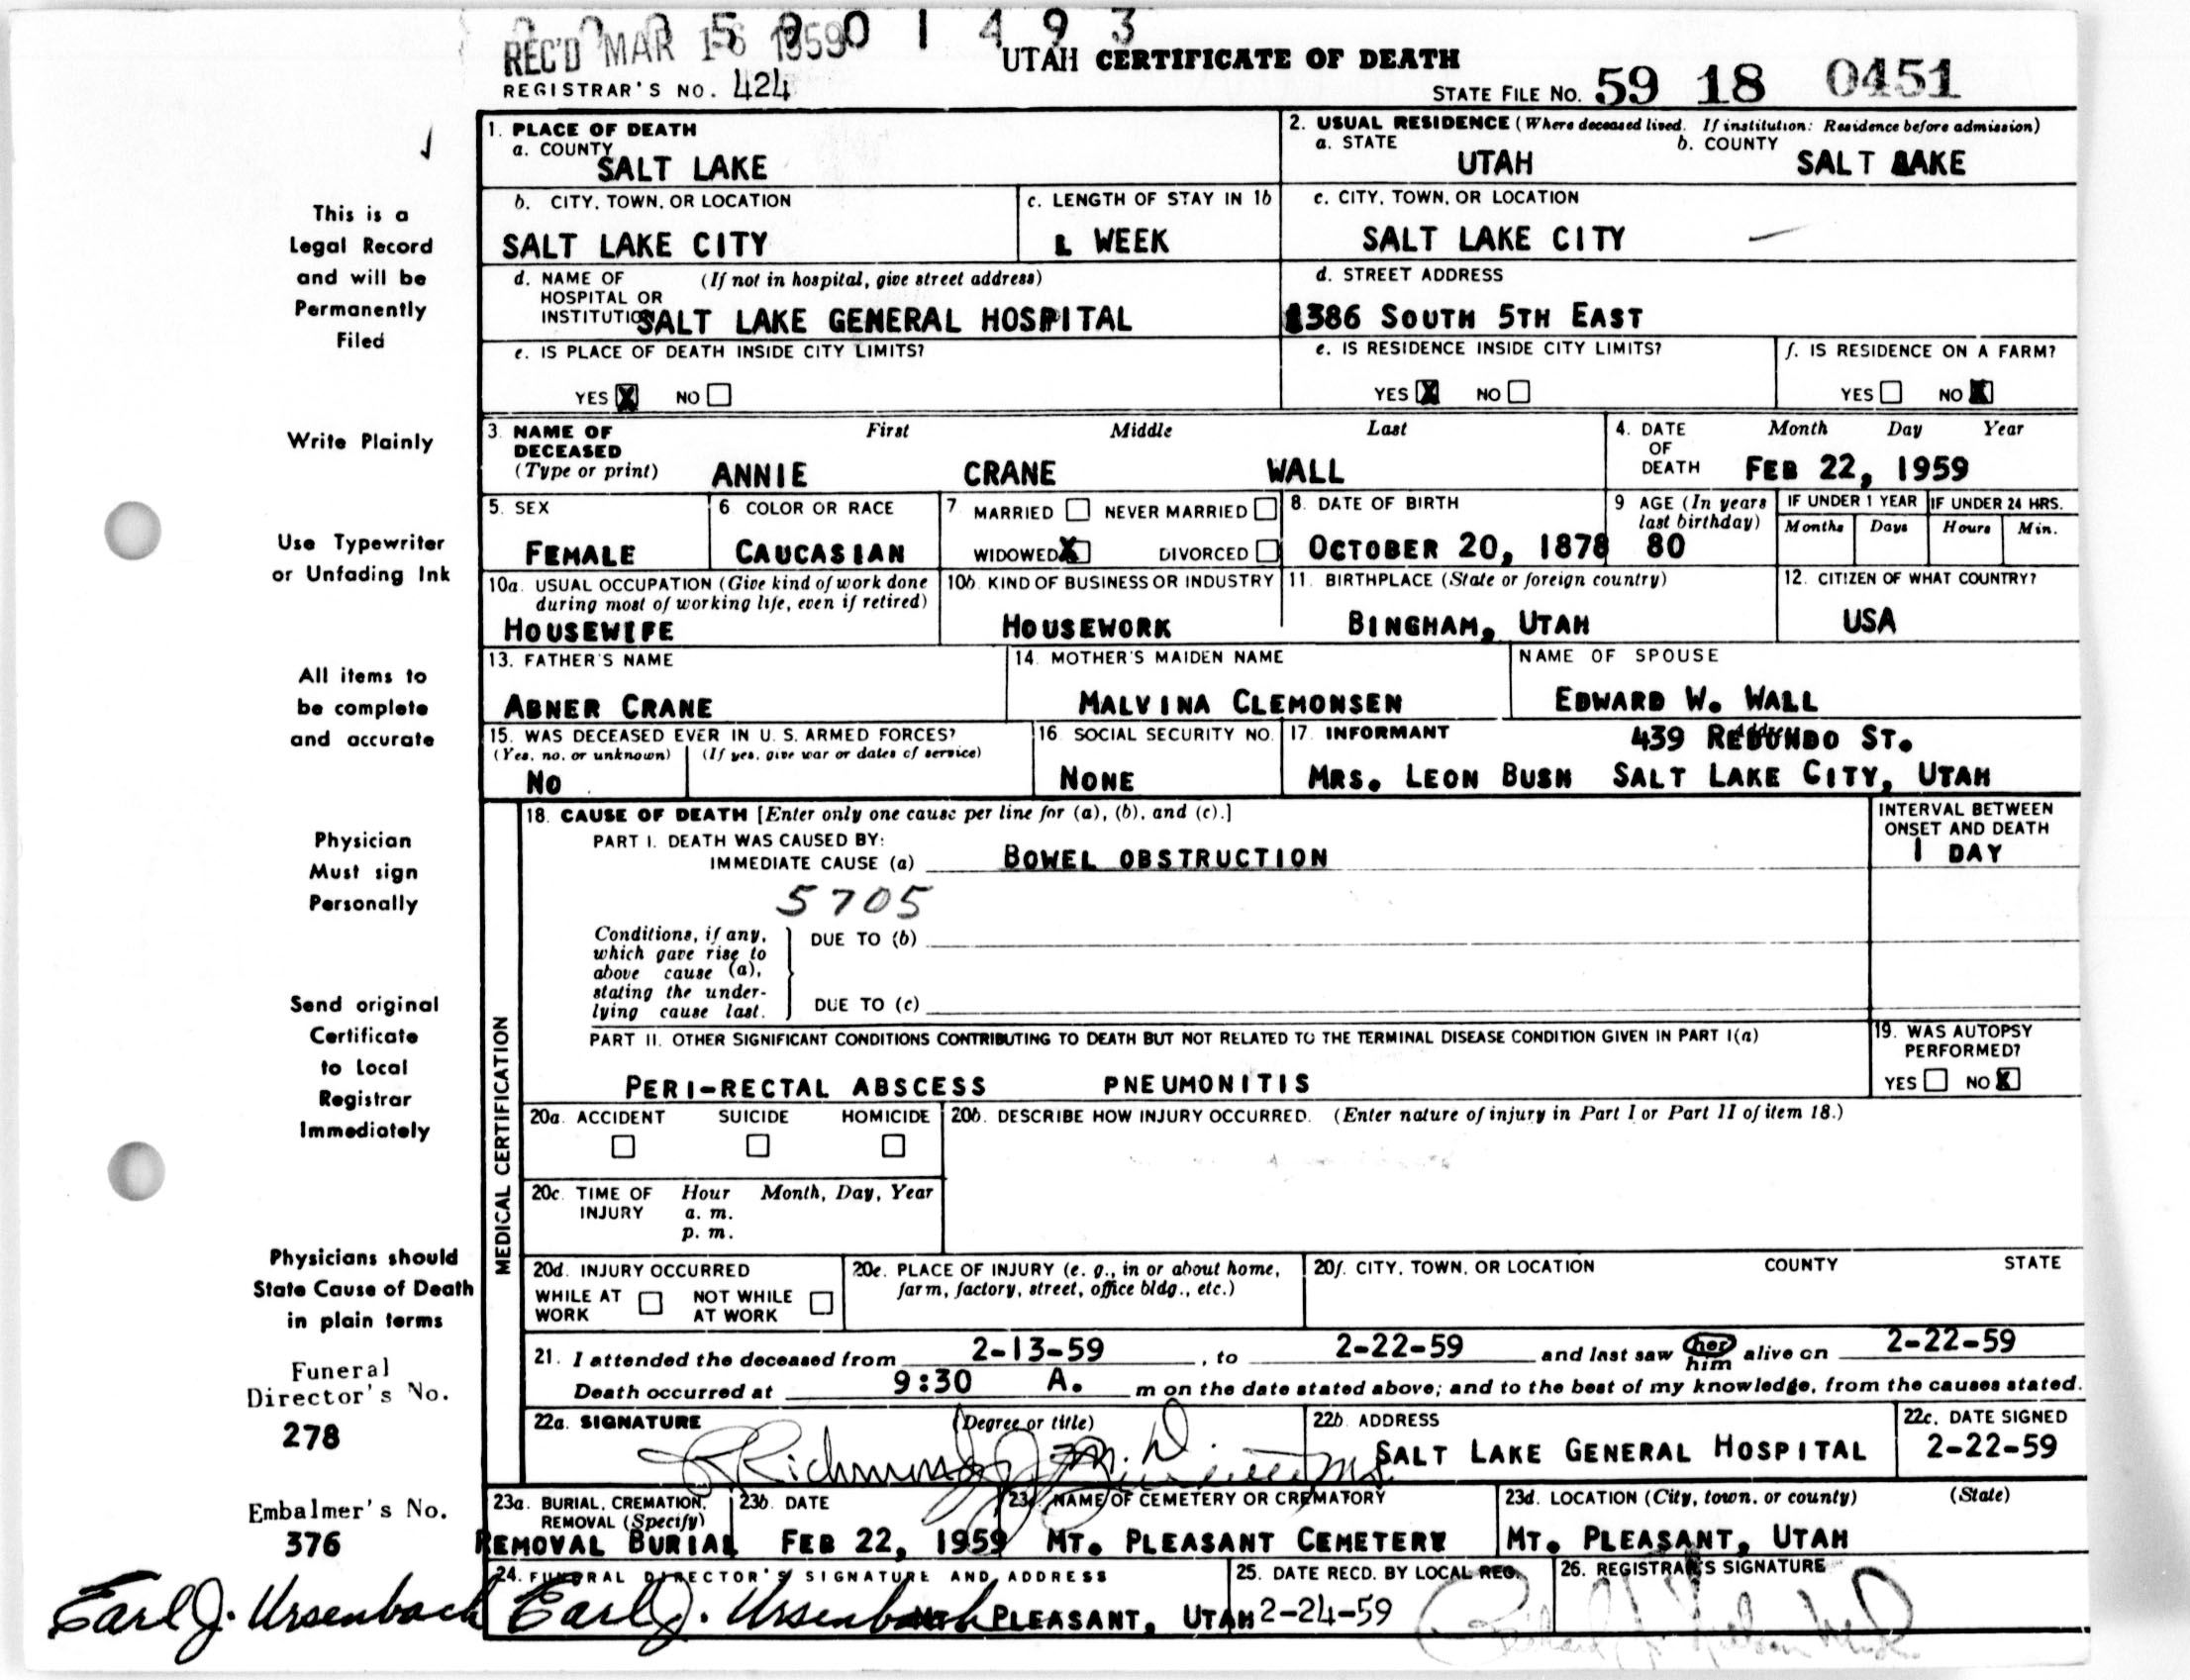 5901493
REC'D MAR 16 1959
UTAH CERTIFICATE OF DEATH
REGISTRAR'S NO. 424
STATE FILE NO. 59 18 0451
This is a
Legal Record
and will be
Permanently
Filed
Write Plainly
Use Typewriter
or Unfading Ink
All items to
be complete
and accurate
Physician
Must sign
Personally
Send original
Certificate
to Local
Registrar
Immediately
Physicians should
State Cause of Death
in plain terms
Funeral
Director's No.
278
Embalmer's No.
376
Earl J. Ursenbach
1. PLACE OF DEATH
a. COUNTY
SALT LAKE
2. USUAL RESIDENCE (Where deceased lived. If institution: Residence before admission)
a. STATE
UTAH
b. COUNTY
SALT LAKE
b. CITY, TOWN, OR LOCATION
SALT LAKE CITY
c. LENGTH OF STAY IN 1b
1 WEEK
c. CITY, TOWN, OR LOCATION
SALT LAKE CITY
d. NAME OF (If not in hospital, give street address)
HOSPITAL OR
INSTITUTION SALT LAKE GENERAL HOSPITAL
d. STREET ADDRESS
1386 SOUTH 5TH EAST
e. IS PLACE OF DEATH INSIDE CITY LIMITS?
YES X NO
e. IS RESIDENCE INSIDE CITY LIMITS?
YES X NO
f. IS RESIDENCE ON A FARM?
YES NO X
3. NAME OF DECEASED (Type or print)
First Middle Last
ANNIE CRANE WALL
4. DATE OF DEATH
Month Day Year
FEB 22, 1959
5. SEX
FEMALE
6 COLOR OR RACE
CAUCASIAN
7. MARRIED NEVER MARRIED
WIDOWED X DIVORCED
8. DATE OF BIRTH
OCTOBER 20, 1878
9 AGE (In years last birthday)
80
IF UNDER 1 YEAR
Months Days
IF UNDER 24 HRS.
Hours Min.
10a. USUAL OCCUPATION (Give kind of work done
during most of working life, even if retired)
HOUSEWIFE
10b. KIND OF BUSINESS OR INDUSTRY
HOUSEWORK
11. BIRTHPLACE (State or foreign country)
BINGHAM, UTAH
12. CITIZEN OF WHAT COUNTRY?
USA
13. FATHER'S NAME
ABNER CRANE
14. MOTHER'S MAIDEN NAME
MALVINA CLEMONSEN
NAME OF SPOUSE
EDWARD W. WALL
15. WAS DECEASED EVER IN U. S. ARMED FORCES?
(Yes, no, or unknown) (If yes, give war or dates of service)
NO
16. SOCIAL SECURITY NO.
NONE
17. INFORMANT
439 REDONDO ST.
MRS. LEON BUSH SALT LAKE CITY, UTAH
MEDICAL CERTIFICATION
18. CAUSE OF DEATH [Enter only one cause per line for (a), (b), and (c).]
PART I. DEATH WAS CAUSED BY:
IMMEDIATE CAUSE (a) BOWEL OBSTRUCTION
INTERVAL BETWEEN
ONSET AND DEATH
1 DAY
5705
Conditions, if any,
which gave rise to
above cause (a),
stating the under-
lying cause last.
DUE TO (b)
DUE TO (c)
PART II. OTHER SIGNIFICANT CONDITIONS CONTRIBUTING TO DEATH BUT NOT RELATED TO THE TERMINAL DISEASE CONDITION GIVEN IN PART I(a)
PERI-RECTAL ABSCESS PNEUMONITIS
19. WAS AUTOPSY
PERFORMED?
YES NO X
20a. ACCIDENT SUICIDE HOMICIDE
20b. DESCRIBE HOW INJURY OCCURRED. (Enter nature of injury in Part I or Part II of item 18.)
20c. TIME OF INJURY
Hour Month, Day, Year
a. m.
p. m.
20d. INJURY OCCURRED
WHILE AT WORK NOT WHILE AT WORK
20e. PLACE OF INJURY (e. g., in or about home,
farm, factory, street, office bldg., etc.)
20f. CITY, TOWN, OR LOCATION COUNTY STATE
21. I attended the deceased from 2-13-59, to 2-22-59 and last saw her him alive on 2-22-59
Death occurred at 9:30 A. m on the date stated above; and to the best of my knowledge, from the causes stated.
22a. SIGNATURE (Degree or title)
22b. ADDRESS
SALT LAKE GENERAL HOSPITAL
22c. DATE SIGNED
2-22-59
23a. BURIAL, CREMATION,
REMOVAL (Specify)
REMOVAL BURIAL
23b. DATE
FEB 22, 1959
23c. NAME OF CEMETERY OR CREMATORY
MT. PLEASANT CEMETERY
23d. LOCATION (City, town, or county) (State)
MT. PLEASANT, UTAH
24. FUNERAL DIRECTOR'S SIGNATURE AND ADDRESS
Earl J. Ursenbach MT. PLEASANT, UTAH
25. DATE RECD. BY LOCAL REG.
2-24-59
26. REGISTRAR'S SIGNATURE